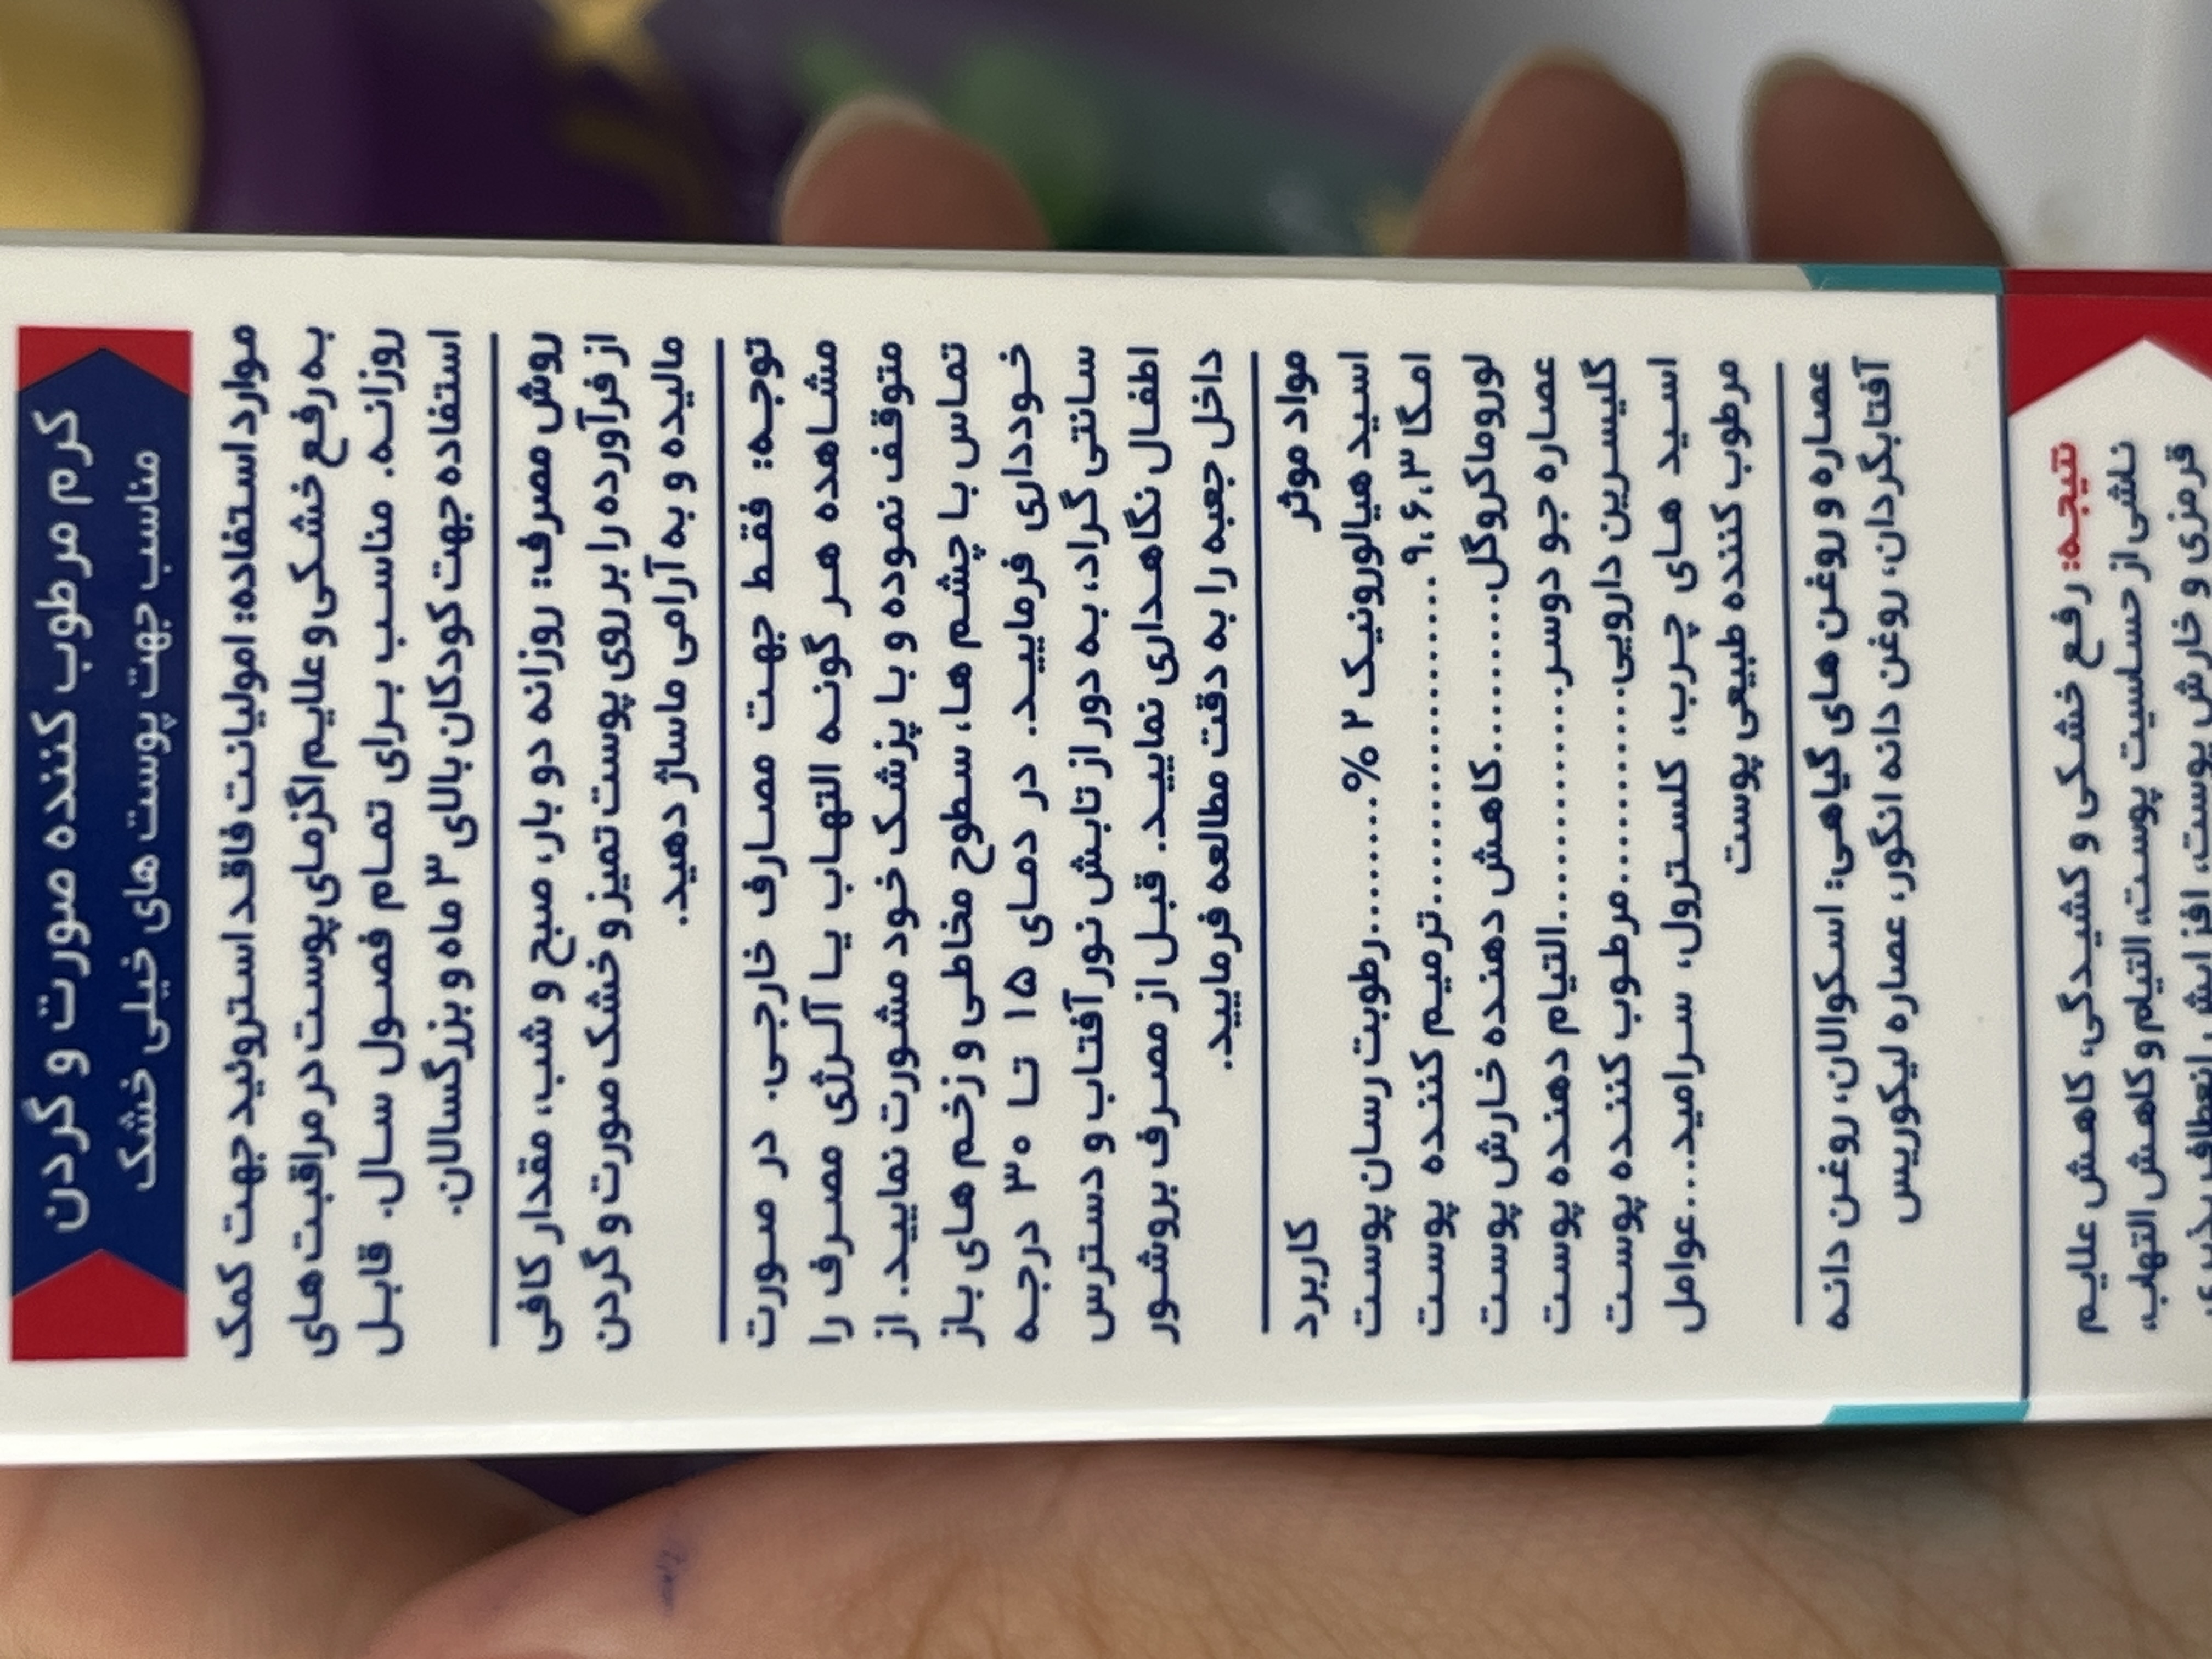 کرم مرطوب کننده صورت و گردن
مناسب جهت پوست های خیلی خشک
موارد استفاده: امولیانت فاقد استروئید جهت کمک
به رفع خشکی و علایم اگزمای پوست در مراقبت های
روزانه. مناسب برای تمام فصول سال. قابل
استفاده جهت کودکان بالای ۳ ماه و بزرگسالان.
روش مصرف: روزانه دو بار، صبح و شب، مقدار کافی
از فرآورده را بر روی پوست تمیز و خشک صورت و گردن
مالیده و به آرامی ماساژ دهید.
توجه: فقط جهت مصارف خارجی. در صورت
مشاهده هر گونه التهاب یا آلرژی مصرف را
متوقف نموده و با پزشک خود مشورت نمایید. از
تماس با چشم ها، سطوح مخاطی و زخم های باز
خودداری فرمایید. در دمای ۱۵ تا ۳۰ درجه
سانتی گراد، به دور از تابش نور آفتاب و دسترس
اطفال نگاهداری نمایید. قبل از مصرف بروشور
داخل جعبه را به دقت مطالعه فرمایید.
مواد موثر کاربرد
اسید هیالورونیک ۲ %..........رطوبت رسان پوست
امگا ۳،۶،۹......................ترمیم کننده پوست
لوروماکروگل..........کاهش دهنده خارش پوست
عصاره جو دوسر...............التیام دهنده پوست
گلیسرین دارویی.............مرطوب کننده پوست
اسید های چرب، کلسترول، سرامید....عوامل
مرطوب کننده طبیعی پوست
عصاره و روغن های گیاهی: اسکوالان، روغن دانه
آفتابگردان، روغن دانه انگور، عصاره لیکوریس
نتیجه: رفع خشکی و کشیدگی، کاهش علایم
ناشی از حساسیت پوست، التیام و کاهش التهاب،
قرمزی و خارش پوست، افزایش انعطاف پذیری